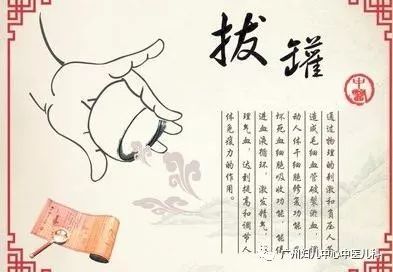 拔罐
中醫
通过物理的刺激和负压人为
造成毛细血管破裂淤血，调
动人体干细胞修复功能，及
坏死血细胞吸收功能，能促
进血液循环，激发精气，调
理气血，达到提高和调节人
体免疫力的作用。
广州妇儿中心中医儿科